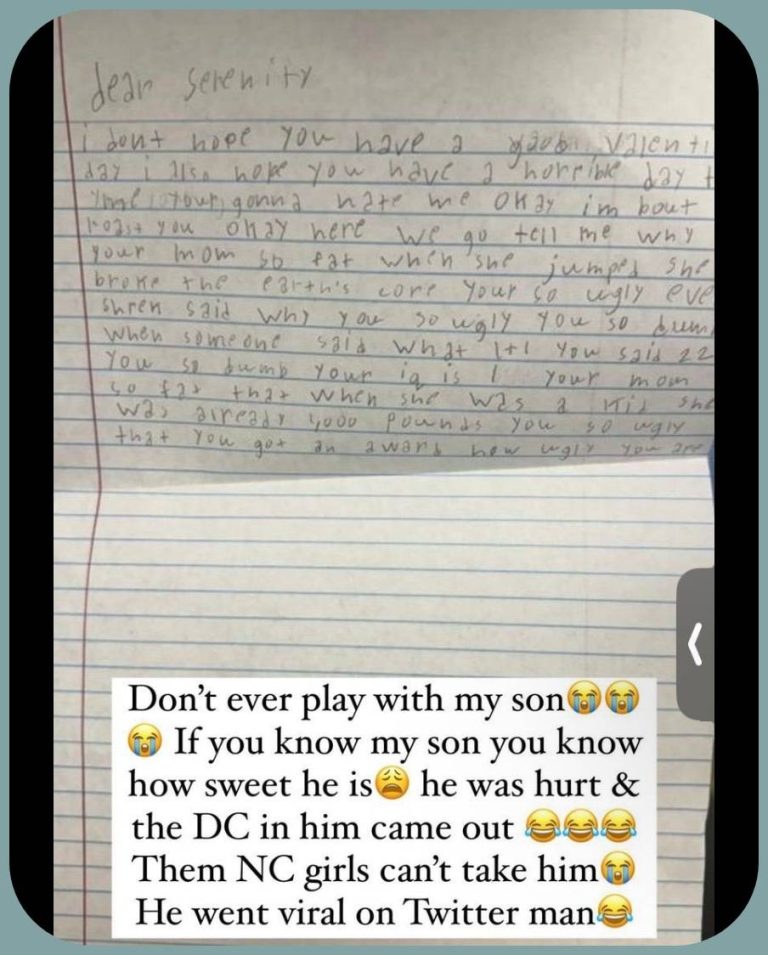 dear serenity
i dont hope you have a valenti
day i also hope you have a horrible day t
your gonna hate me okay im bout
roast you okay here we go tell me why
your mom so fat when she jumped she
broke the earth's core your so ugly eve
shren said why you so ugly you so dum
when someone said what 1+1 you said 22
you so dumb your iq is 1 your mom
so fat that when she was a kid she
was already 4,000 pounds you so ugly
that you got an award how ugly you are
Don't ever play with my son😭😭
😭 If you know my son you know
how sweet he is😩 he was hurt &
the DC in him came out 😂😂😂
Them NC girls can't take him😭
He went viral on Twitter man😂